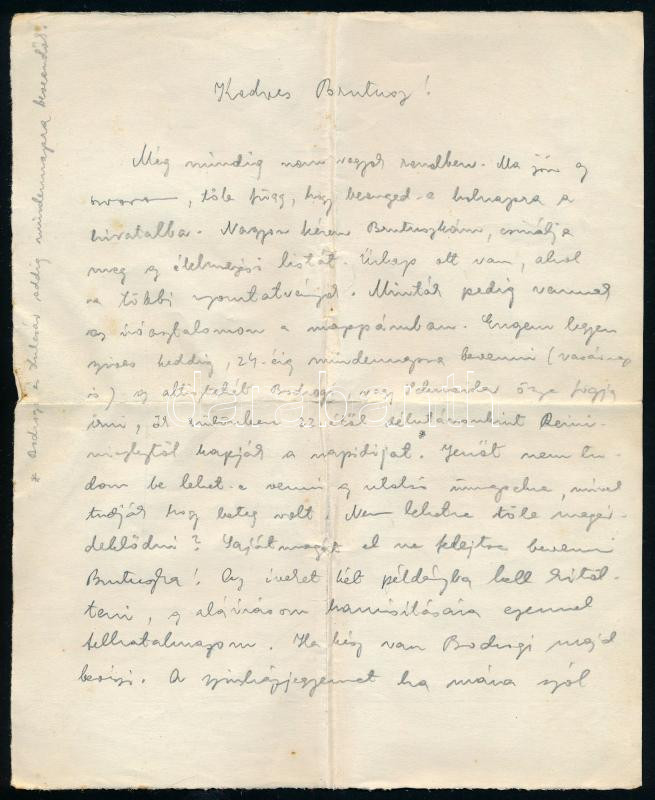 Kedves Brutusz!
Még mindig nem vagyok rendben. Ma jön az
orvos, tőle függ, hogy beenged-e holnapra a
hivatalba. Nagyon kérem Brutuszkám, csinálja
meg az élelmezési listát. Űrlap ott van, ahol
a többi nyomtatványok. Minták pedig vannak
az íróasztalomon a mappámban. Engem legyen
szives keddig, 24-éig mindennapra bevenni (vasárnap
is) az altisztekét Bodrogi vagy Schneider össze fogja
írni, ők különben 22-étől délutánonkint
kapják a napidíjat.* Jenőt nem tu-
dom be lehet-e venni az utolsó napokra, mivel
tudják hogy beteg volt. Nem lehetne tőle megér-
deklődni? Saját magát el ne felejtse bevenni
Brutuszka! Az íveket két példányba kell kitöl-
teni, az aláírásom hamisítására ezennel
felhatalmazom. Ha kész van Bodrogi majd
beviszi. A színházjegyemet ha mára szól
* Bodrogi a addig mindennapra beszandó.
darabanth